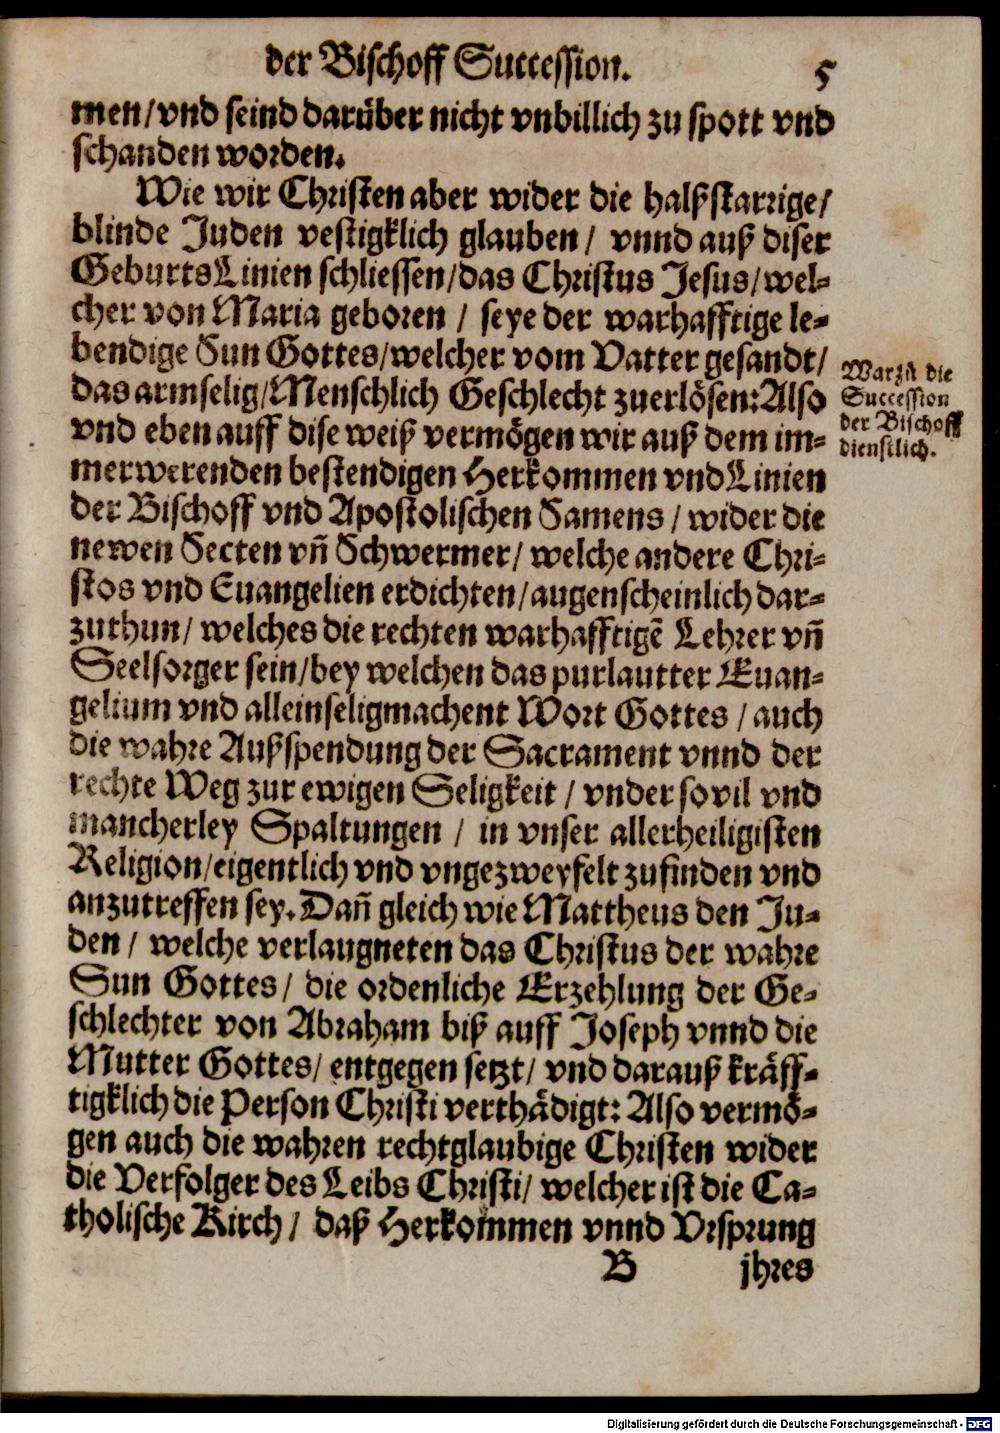 der Bischoff Succession. 5
men/vnd seind darüber nicht vnbillich zu spott vnd
schanden worden.
Wie wir Christen aber wider die halßstarrige/
blinde Juden vestigklich glauben/ vnnd auß diser
GeburtsLinien schliessen/das Christus Jesus/wel-
cher von Maria geboren / seye der warhafftige le-
bendige Sun Gottes/welcher vom Vatter gesandt/
das armselig/Menschlich Geschlecht zuerlösen:Also
vnd eben auff dise weiß vermögen wir auß dem im-
merwerenden bestendigen Herkommen vnd Linien
der Bischoff vnd Apostolischen Samens / wider die
newen Secten vñ Schwermer/ welche andere Chri-
stos vnd Euangelien erdichten/augenscheinlich dar-
zuthun/ welches die rechten warhafftigē Lehrer vñ
Seelsorger sein/bey welchen das purlautter Euan-
gelium vnd alleinseligmachent Wort Gottes / auch
die wahre Außspendung der Sacrament vnnd der
rechte Weg zur ewigen Seligkeit / vnder sovil vnd
mancherley Spaltungen / in vnser allerheiligisten
Religion/eigentlich vnd vngezweyfelt zufinden vnd
anzutreffen sey. Dañ gleich wie Mattheus den Ju-
den / welche verlaugneten das Christus der wahre
Sun Gottes/ die ordenliche Erzehlung der Ge-
schlechter von Abraham biß auff Joseph vnnd die
Mutter Gottes/ entgegen setzt/ vnd darauß kräff-
tigklich die Person Christi verthädigt: Also vermö-
gen auch die wahren rechtglaubige Christen wider
die Verfolger des Leibs Christi/ welcher ist die Ca-
tholische Kirch/ daß Herkommen vnnd Vrsprung
B jhres
Warzů die
Succession
der Bischoff
dienstlich.
Digitalisierung gefördert durch die Deutsche Forschungsgemeinschaft - DFG